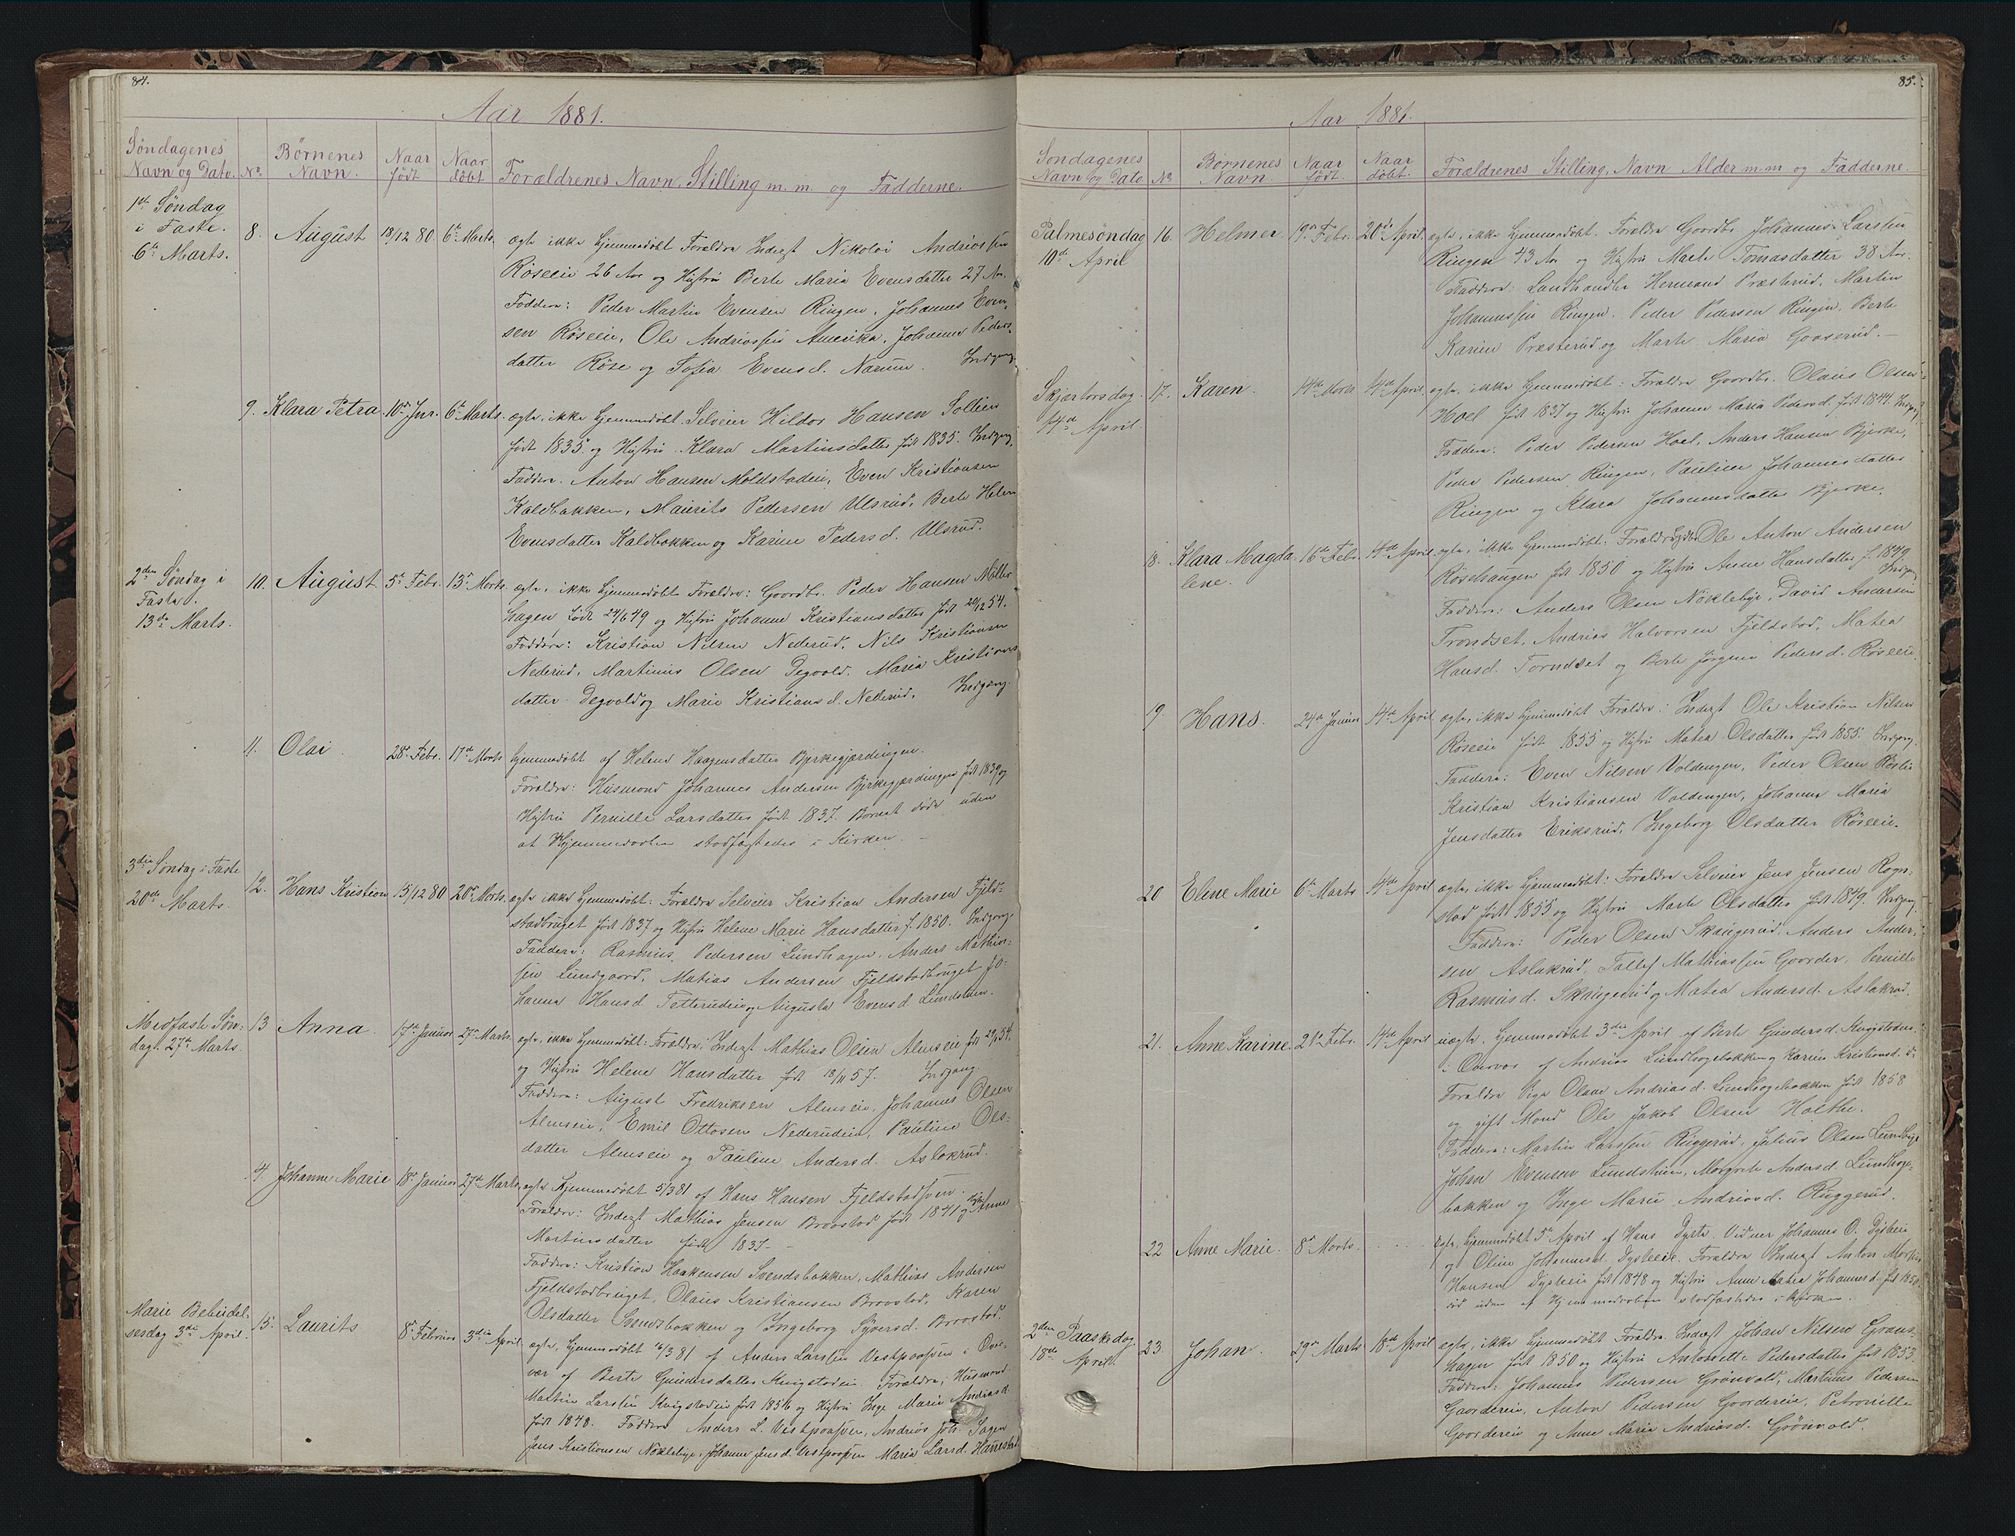 84.
Aar 1881.
Søndagenes Navn og Dato. No. Børnenes Navn. Naar født Naar døbt Forældrenes Navn, Stilling m. m. og Fadderne.
1ste Søndag i Faste. 6te Marts.
8. August 18/12 80 6te Marts. ægte ikke hjemmedøbt Forældre Inderst Nikolai Andriassen
Røseeie 26 Aar og Hustru Berte Maria Evensdatter 27 Ar.
Faddere: Peder Martin Evensen Ringen, Johannes Even-
sen Røseeie, Ole Andriassen Amerika, Johanne Peders-
datter Røse og Sofia Evensd. Narum. Indgang
9. Klara Petra 10de Jnr. 6te Marts. ægte, ikke hjemmedøbt Selveier Hildor Hansen Sollien
født 1835 og Hustru Klara Martinsdatter født 1835. Indgang.
Faddere. Anton Hansen Moldstadeie, Even Kristiansen
Kaldbakken, Maurits Pedersen Ulsrud, Berte Helene
Evensdatter Kaldbakken og Karine Pedersd. Ulsrud.
2den Søndag i Faste. 13de Marts.
10. August 5te Febr. 13de Marts. ægte, ikke hjemmedøbt Forældre: Gaardbr. Peder Hansen Møller-
hagen født 24/6 49 og Hustru Johanne Kristiansdatter født 20/12 54.
Faddere: Kristian Nilsen Nederud, Nils Kristiansen
Nederud, Martinus Olsen Degvold, Maria Kristians-
datter Degvold og Marie Kristiansd. Nederud, Indgang.
11. Olai. 28de Febr. 17de Marts hjemmedøbt af Helene Haagensdatter Bjerkegjærdingen.
Forældre: Husmand Johannes Andersen Bjerkegjærdingen født 1839 og
Hustru Pernille Larsdatter født 1837. Barnet døde uden
at Hjemmedaaben stadfæstedes i Kirken. —
3die Søndag i Faste 20de Marts.
12. Hans Kristian 15/12 80 20de Marts. ægte ikke hjemmedøbt: Forældre Selveier Kristian Andersen Fjeld-
stadbruget født 1837 og Hustru Helene Marie Hansdatter f. 1850. Indgang.
Faddere: Rasmus Pedersen Lundhagen, Anders Mathias-
sen Lundgaard, Matias Andersen Fjeldstadhauget Jo-
hanna Hansd. Fetterudeie og Augusta Evensd. Lundstuen.
Midfaste Søn-
dag 27de Marts.
13 Anna. 17de Januar 27de Marts. ægte, ikke hjemmedøbt: Forældre: Inderst Mathias Olsen Almseie født
og Hustru Helene Hansdatter født 18/11 57. Indgang.
Faddere: August Fredriksen Almseie, Johannes Olsen
Almseie, Emil Ottosen Nederudeie, Pauline Ols-
datter Almseie og Pauline Andersd. Aslakrud.
4 Johanne Marie 18de Januar 27de Marts. ægte, hjemmedøbt 5/3 81 af Hans Hansen Fjeldstad
Forældre: Inderst Mathias Jensen Braastad født 1841 og Hustru Anne
Martinsdatter født 1837. —
Faddere: Kristian Haakensen Svendsbakken, Mathias Andersen
Fjeldstadbruget, Olaus Kristiansen Braastad, Karen
Olsdatter Svendsbakken og Ingeborg Syversd. Braastad.
Marie Bebudel-
sesdag 3die April.
15. Laurits 8de Februar 3die April ægte, hjemmedøbt 6/3 81 af Anders Larsen i Over-
vær af Berte Gundersdatter Kvigstadeie. Forældre: Husmand
Martin Larsen Kvigstadeie født 1856 og Hustru Inge Marie Andriasd.
født 1848. Faddere Anders L. Andrias Joh.
Jens Kristiansen Nøklebye, Johanne Jensd. Maria Larsd. Hanestad.
85.
Aar 1881.
Søndagenes Navn og Dato No. Børnenes Navn Naar født. Naar døbt. Forældrenes Stilling, Navn Alder m m og Fadderne.
Palmesøndag 10de April
16. Helmer 19de Febr. 20de April. ægte, ikke hjemmedøbt. Forældre Gaardbr. Johannes Larsen
Ringen 43 Aar og Hustru Marte Tomasdatter 38 Aar.
Faddere: Landhandler Hermand Præsterud, Martin
Johannessen Ringen. Peder Pedersen Ringen. Berte
Karine Præsterud og Marte Maria Gaaserud. —
Skjærtorsdag 14de April.
17. Karen. 14de Marts 14de April ægte, ikke hjemmedøbt: Forældre Gaardbr. Olaus Olsen
Hoel født 1837 og Hustru Johanne Maria Pedersd. født 1847. Indgang.
Faddere: Peder Pedersen Hoel, Anders Hansen Bjerke,
Peder Pedersen Ringen, Pauline Johannesdatter
Ringen og Klara Johannesdatter Bjerke.
18. Klara Magda
lene. 16de Febr. 14de April. ægte, ikke hjemmedøbt: Forældre Ole Anton Andersen
Røsehaugen født 1850 og Hustru Anne Hansdatter f. 1849. Indgang
Faddere: Anders Olsen Nøklebye, David Andersen
Trondset, Andrias Halvorsen Fjeldstad, Matea
Hansd. Torndset og Berte Jørgine Pedersd. Røseeie.
19. Hans. 24de Januar 14de April ægte, ikke hjemmedøbt Forældre: Inderst Ole Kristian Nilsen
Røseeie født 1855 og Hustru Matea Olsdatter født 1855. Indgang.
Faddere: Even Nilsen Voldengen, Peder Olsen
Kristian Kristiansen Voldengen, Johanne Maria
Jensdatter Eriksrud, Ingeborg Olsdatter Røseeie.
20 Eline Marie 6te Marts 14de April ægte, ikke hjemmedøbt: Forældre Selveier Jens Jensen Rogn-
stad født 1855 og Hustru Marte Olsdatter født 1849. Indgang.
Faddere: Peder Olsen Skaugerud, Anders Ander-
sen Aslakrud, Tollef Mathiassen Gaarder, Pernille
Rasmusd. Skaugerud og Matea Andersd. Aslakrud.
21. Anne Karine. 21de Febr. 14de April uægte, hjemmedøbt 3die April af Berte Gundersd. Kvigstadeie
i Overvær af Andrias Lundhagebakken og Karen Kristiansd.
Forældre Pige Oline Andriasd. Lundhagebakken født 1858
og gift Mand Ole Jakob Olsen Holthe.
Faddere: Martin Larssen Ruggerud, Julius Olsen
Johan Evensen Lundstuen, Margrete Andersd. Lundhage-
bakken og Inge Marie Andriasd. Ruggerud.
22 Anne Marie. 8de Marts. ægte, hjemmedøbt 5te April af Hans Dyste. Vidner Johannes O. Dysteeie
og Oline Johannesd. Dysteeie. Forældre Inderst Anton Martin
Hansen Dysteeie født 1848 og Hustru Anne Matea Johannesd. født
død uden at Hjemmedaaben stadfæstedes i Kirken.
2den Paaskedag 18de April.
23. Johan. 29de Marts 18de April ægte, ikke hjemmedøbt Forældre Inderst Johan Nilsen Grans-
hagen født 1850 og Hustru Antonette Pedersdatter født 1853.
Faddere: Johannes Pedersen Grønvold, Martinus Pedersen
Gaardereie, Anton Pedersen Gaardereie, Petronille
Gaardereie og Anne Maria Andriasd. Grønvold.